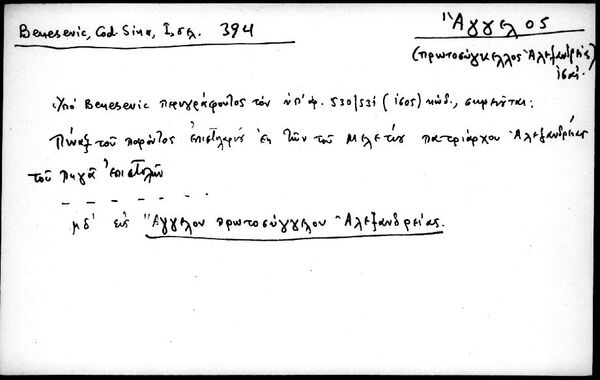 Benesevic, Cod. Sina, I, σελ. 394
Ἄγγελος
(πρωτοσύγκελλος Ἀλεξανδρείας)
Ὑπὸ Benesevic περιγράφοντος τὸν ὑπ' ἀρ. 530/531 (1605) κώδ., σημειοῦται:
Πίναξ τοῦ παρόντος ἐκ τῶν τοῦ Μελετίου πατριάρχου Ἀλεξανδρείας
τοῦ Πηγᾶ ἐπιστολῶν
μδ' εἰς Ἄγγελον πρωτοσύγγελον Ἀλεξανδρείας.